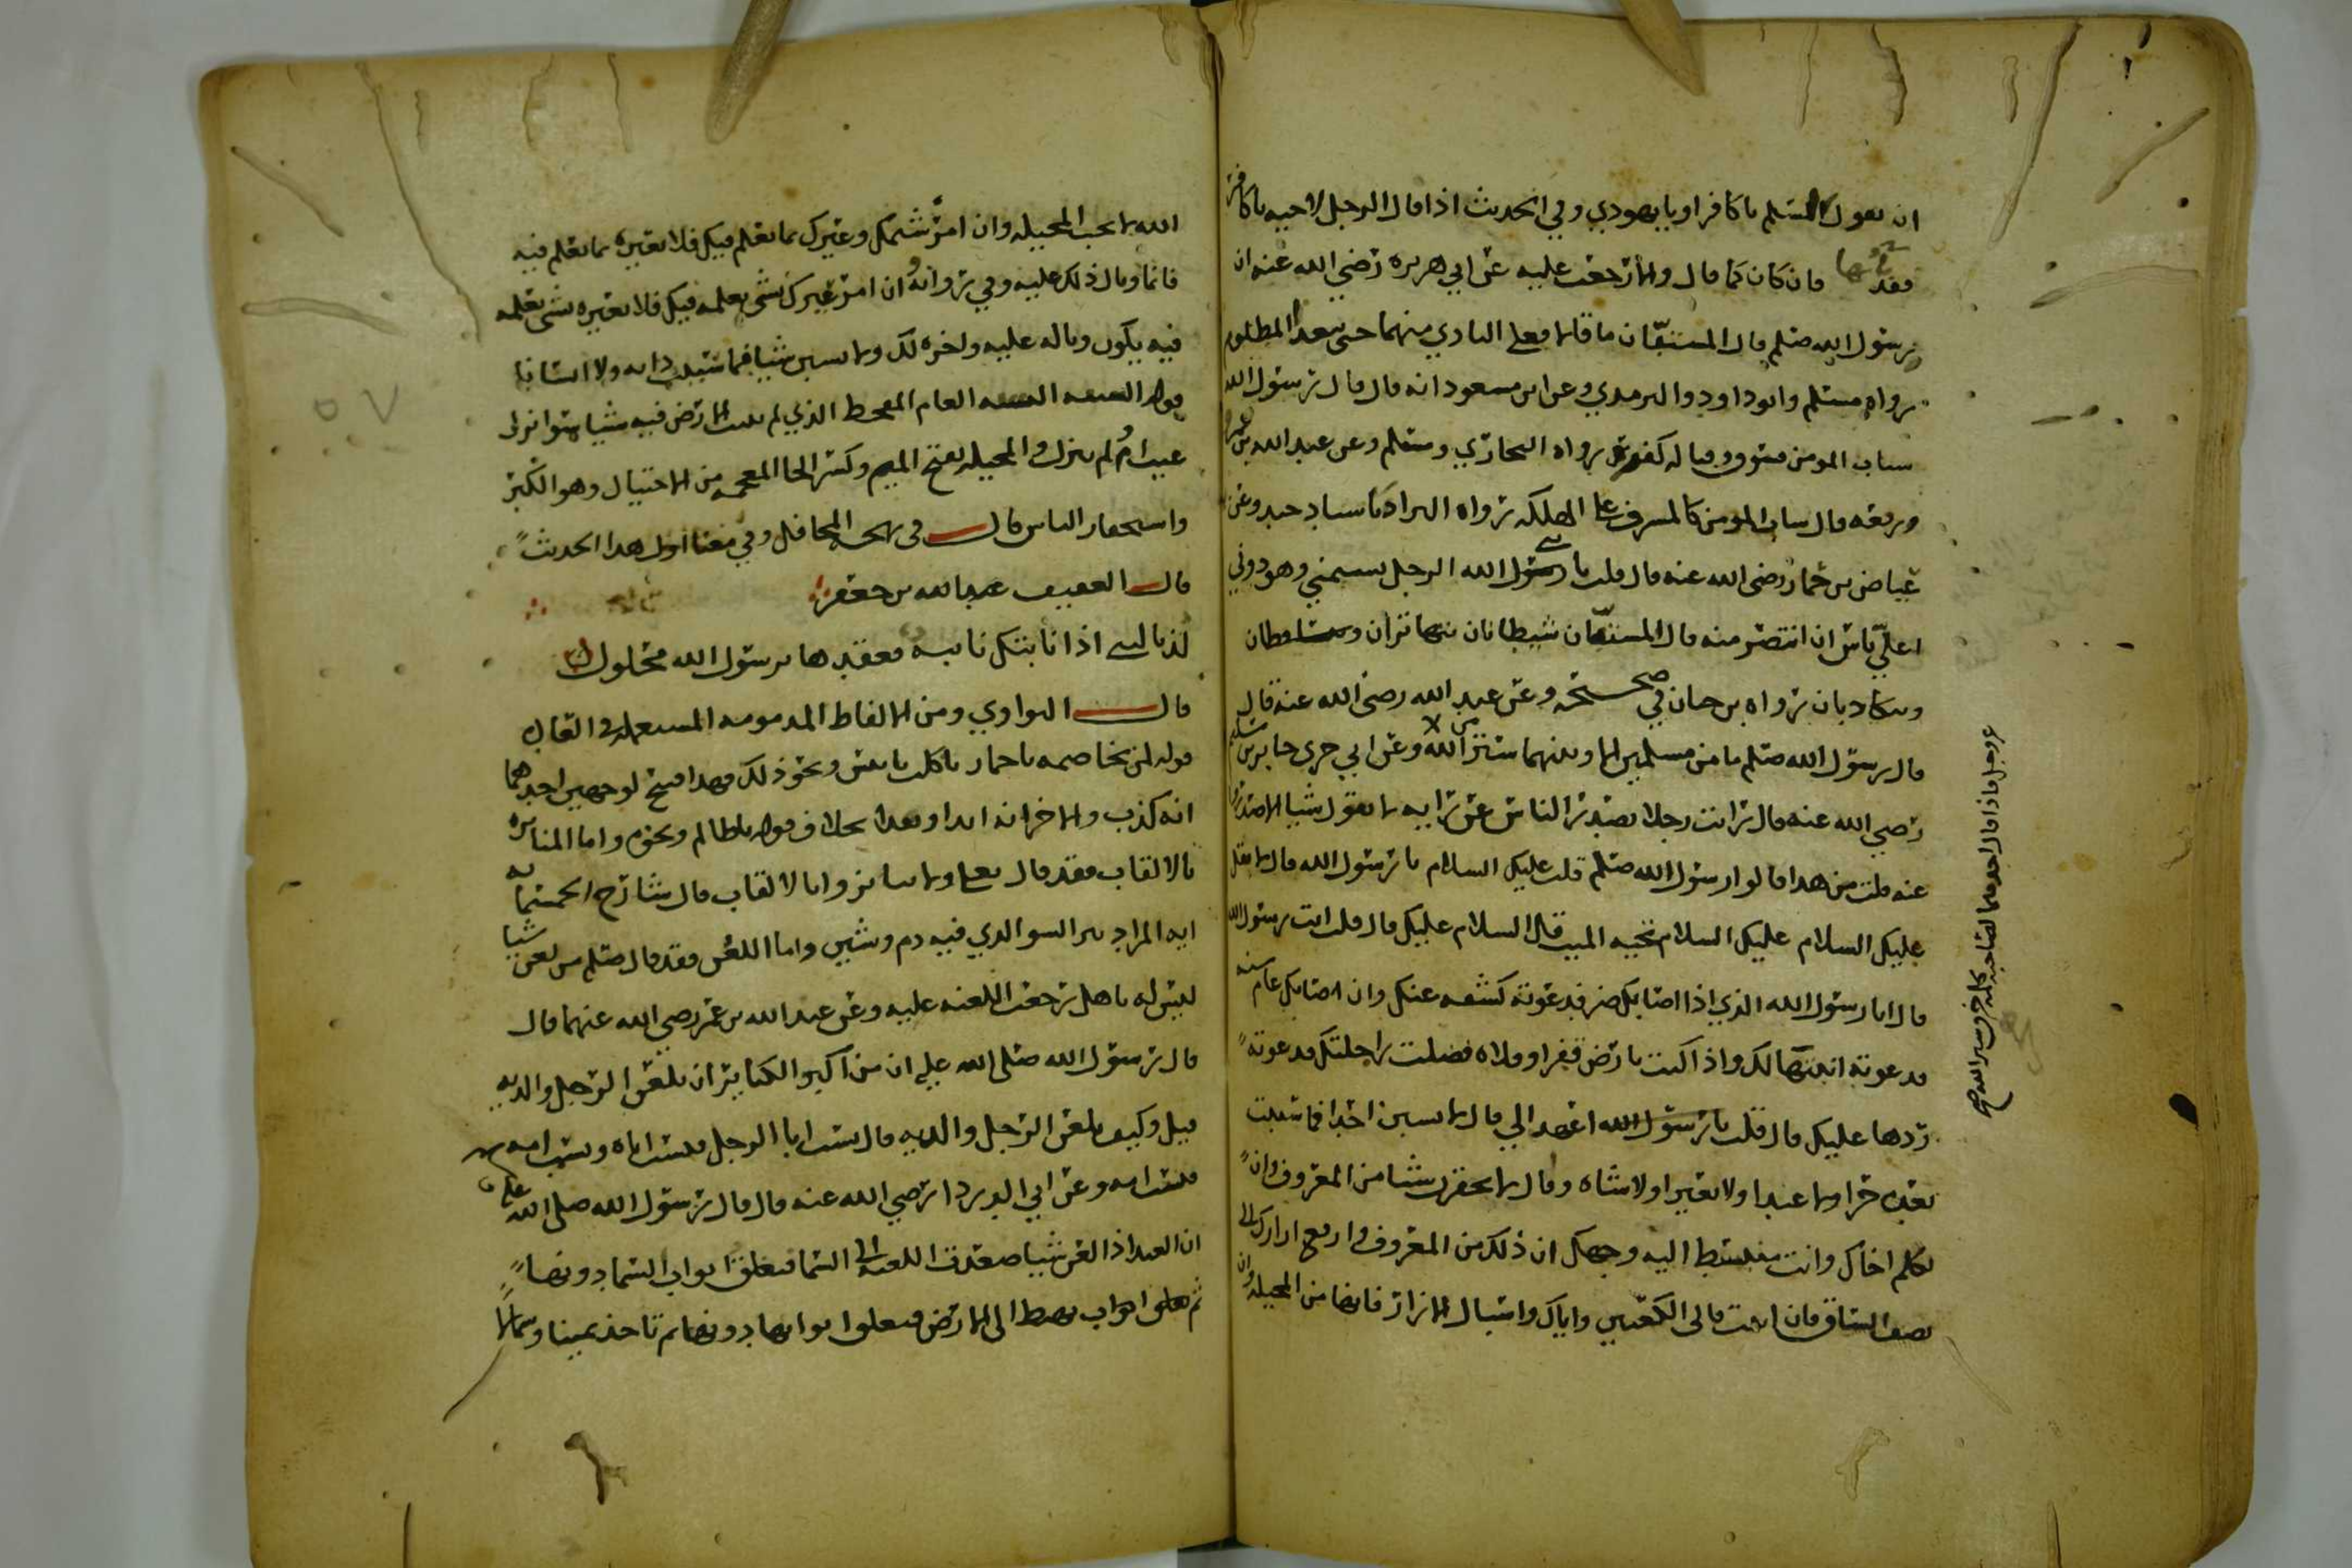 ان يقول المسلم يا كافر او يا يهودي وفي الحديث اذا قال الرجل لاخيه يا كافر
فقد باء بها فان كان كما قال والا رجعت عليه عن ابي هريره رضي الله عنه ان
رسول الله صلم قال المستبان ما قالا فعلى البادي منهما حتى يتعدا المظلوم
رواه مسلم وابو داود والترمدي وعن ابن مسعود انه قال قال رسول الله
سباب المومن فسوق وقتاله كفر رواه البخاري ومسلم وعن عبد الله بن عمرو
ورفعه قال ساب المومن كالمشرف على الهلكه رواه البزاد باسناد جيد وعن
عياض بن حمار رضي الله عنه قال قلت يا رسول الله الرجل يشتمني وهو دوني
اعلي باس ان انتصر منه قال المستبان شيطانان يتهاتران
ويتكادبان رواه بن حبان في صحيحه وعن عبد الله رضي الله عنه قال
قال رسول الله صلم ما من مسلمين الا وبينهما ستر من الله وعن ابي جري جابر بن سليم
رضي الله عنه قال رايت رجلا يصدر الناس عن رايه لا يقول شيا الا صدروا
عنه قلت من هدا قالوا رسول الله صلم قلت عليك السلام يا رسول الله قال لا تقل
عليك السلام عليك السلام تحيه الميت قل السلام عليك قال قلت انت رسول الله
قال انا رسول الله الذي اذا اصابك ضر فدعوته كشفه عنك وان اصابك عام سنه
فدعوته انبتها لك واذا كنت بارض قفر او فلاه فضلت راحلتك فدعوته
ردها عليك قال قلت يا رسول الله اعهد الي قال لا تسبن احدا فما سببت
بعده حرا ولا عبدا ولا بعيرا ولا شاه وقال لا تحقرن شيا من المعروف وان
تكلم اخاك وانت منبسط اليه وجهك ان ذلك من المعروف وارفع ازارك الى
نصف الساق فان ابيت فالى الكعبين واياك واسبال الازار فانها من المخيله وان
عز وجل فاذا قال احدهما لصاحبه كلمه هجر خرق ستر الله
الله لا يحب المخيله وان امرؤ شتمك وعيرك بما يعلم فيك فلا تعيره بما تعلم فيه
فانما وبال ذلك عليه وفي روايه وان امرؤ عيرك بشي يعلمه فيك فلا تعيره بشي تعلمه
فيه يكون وباله عليه واجره لك ولا تسبن شيا فما سببت دابه ولا انسانا
قوله السنه العام المقحط الذي لم تنبت الارض فيه شيا سوا نزل
غيث ام لم ينزل والمخيله بفتح الميم وكسر الخا المعجمه من الاختيال وهو الكبر
واستحقار الناس قال في المحافل وفي معنا اول هدا الحديث
قال العفيف عبد الله بن جعفر
لذ بالنبي اذا نابتك نايبه فعقدها برسول الله محلول
قال النواوي ومن الالفاظ المدمومه المستعمله في العاده
قوله لمن يخاصمه يا حمار يا كلب يا تيس ونحو ذلك فهدا قبيح لوجهين احدهما
انه كذب والاخر انه ايدا وهدا بخلاف قوله يا ظالم ونحوه واما المنابزه
بالالقاب فقد قال تعلى ولا تنابزوا بالالقاب قال شارح
ايه المراد نبز السو الدي فيه دم وشين واما اللعن فقد قال صلم من لعن شيا
ليس له باهل رجعت اللعنه عليه وعن عبد الله بن عمر رضي الله عنهما قال
قال رسول الله صلى الله عليه ان من اكبر الكباير ان يلعن الرجل والديه
قيل وكيف يلعن الرجل والديه قال يسب ابا الرجل فيسب اباه ويسب امه
فيسب امه وعن ابي الدردا رضي الله عنه قال قال رسول الله صلى الله عليه
ان العبد اذا لعن شيا صعدت اللعنه الى السما فتغلق ابواب السما دونها
ثم تهبط الى الارض فتغلق ابوابها دونها ثم تاخذ يمينا وشمالا